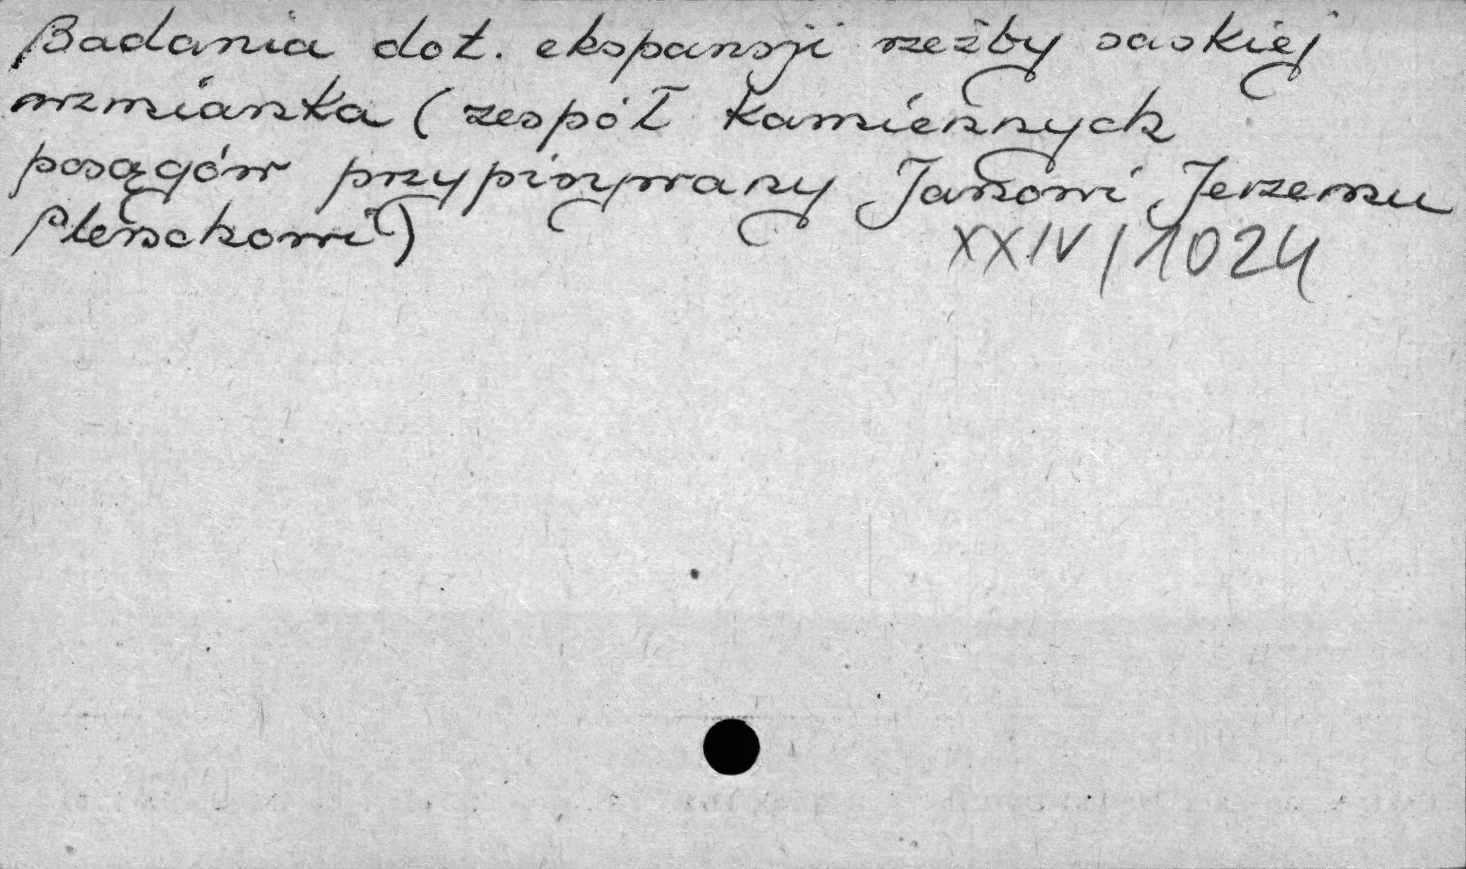 Badania dot. ekspansji rzeźby saskiej
wzmianka (zespół kamiennych
posągów przypisywany Janowi Jerzemu
Plerschowi)
XXIV/1024